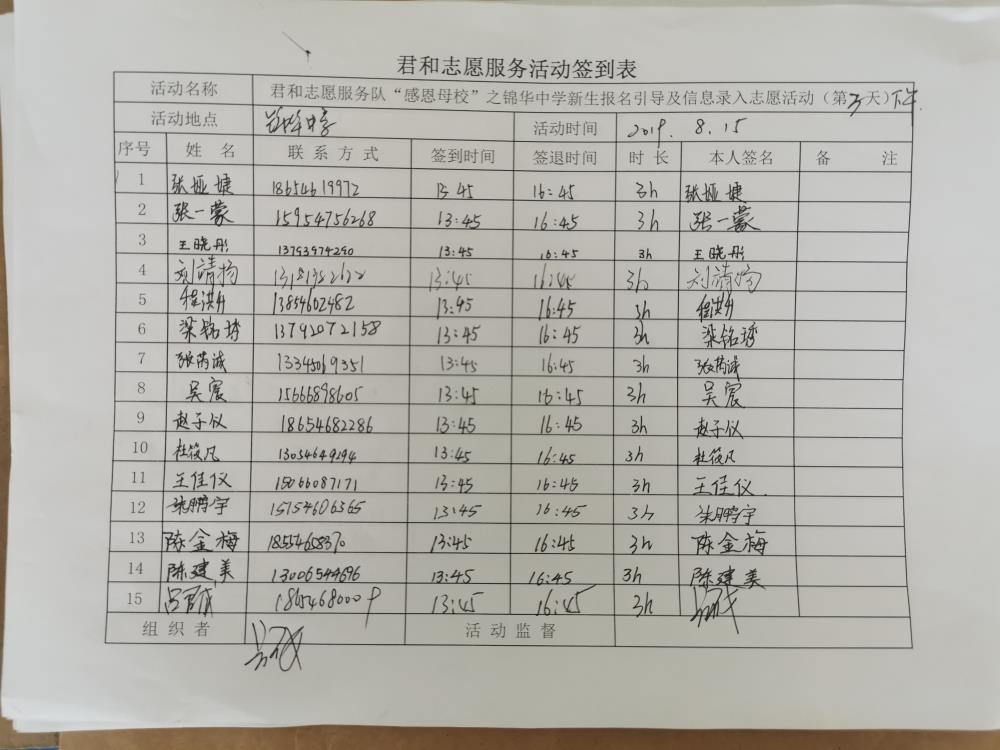 君和志愿服务活动签到表
活动名称 君和志愿服务队“感恩母校”之锦华中学新生报名引导及信息录入志愿活动（第3天）下午
活动地点 锦华中学 活动时间 2019. 8. 15
序号 姓 名 联 系 方 式 签到时间 签退时间 时 长 本人签名 备 注
1 张娅婕 18654619972 13 45 16:45 3h 张娅婕
2 张一蒙 15954756268 13:45 16:45 3h 张一蒙
3 王晓彤 13793974290 13:45 16:45 3h 王晓彤
4 刘靖扬 13:45 16:45 3h 刘靖扬
5 程洪升 13854602482 13:45 16:45 3h 程洪升
6 梁铭琇 13792072158 13:45 16:45 3h 梁铭琇
7 张芮诚 13345069351 13:45 16:45 3h 张芮诚
8 吴宸 15666898605 13:45 16:45 3h 吴宸
9 赵子仪 18654682286 13:45 16:45 3h 赵子仪
10 杜筱凡 13054649294 13:45 16:45 3h 杜筱凡
11 王佳仪 15066087171 13:45 16:45 3h 王佳仪
12 鹏宇 15754606365 13:45 16:45 3h 鹏宇
13 陈金梅 18554658370 13:45 16:45 3h 陈金梅
14 陈建美 13006544696 13:45 16:45 3h 陈建美
15 18654680009 13:45 16:45 3h
组 织 者 活 动 监 督